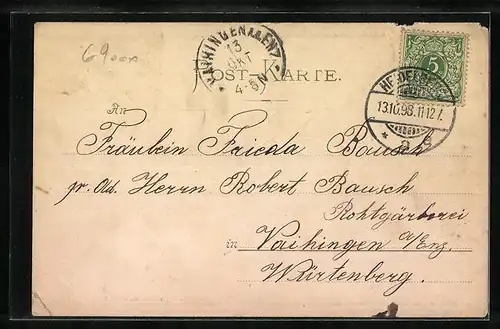 6900n
VAIHINGEN A. ENZ
13 OKT
4-5N
POST-KARTE.
5
HEIDELBERG
13.10.98.11-12V.
* 2 g
An
Fräulein Frieda Bausch
pr. ad. Herrn Robert Bausch
Rohtgärberei
in Vaihingen a/Enz.
Würtenberg.